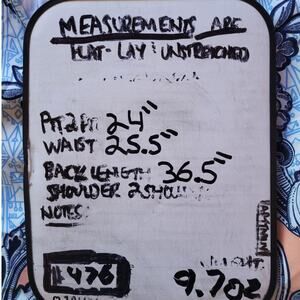 MEASUREMENTS ARE
FLAT-LAY & UNSTRETCHED
PIT 2 PIT 24"
WAIST 25.5"
BACK LENGTH 36.5"
SHOULDER 2
NOTES:
#476
9.7oz